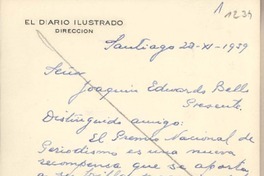 1 1234
EL DIARIO ILUSTRADO
DIRECCION
Santiago 28-XI-1959
Señor
Joaquin Edwards Bello
Presente.
Distinguido amigo:
El Premio Nacional de
Periodismo es una nueva
recompensa que se aporta
a su brillante